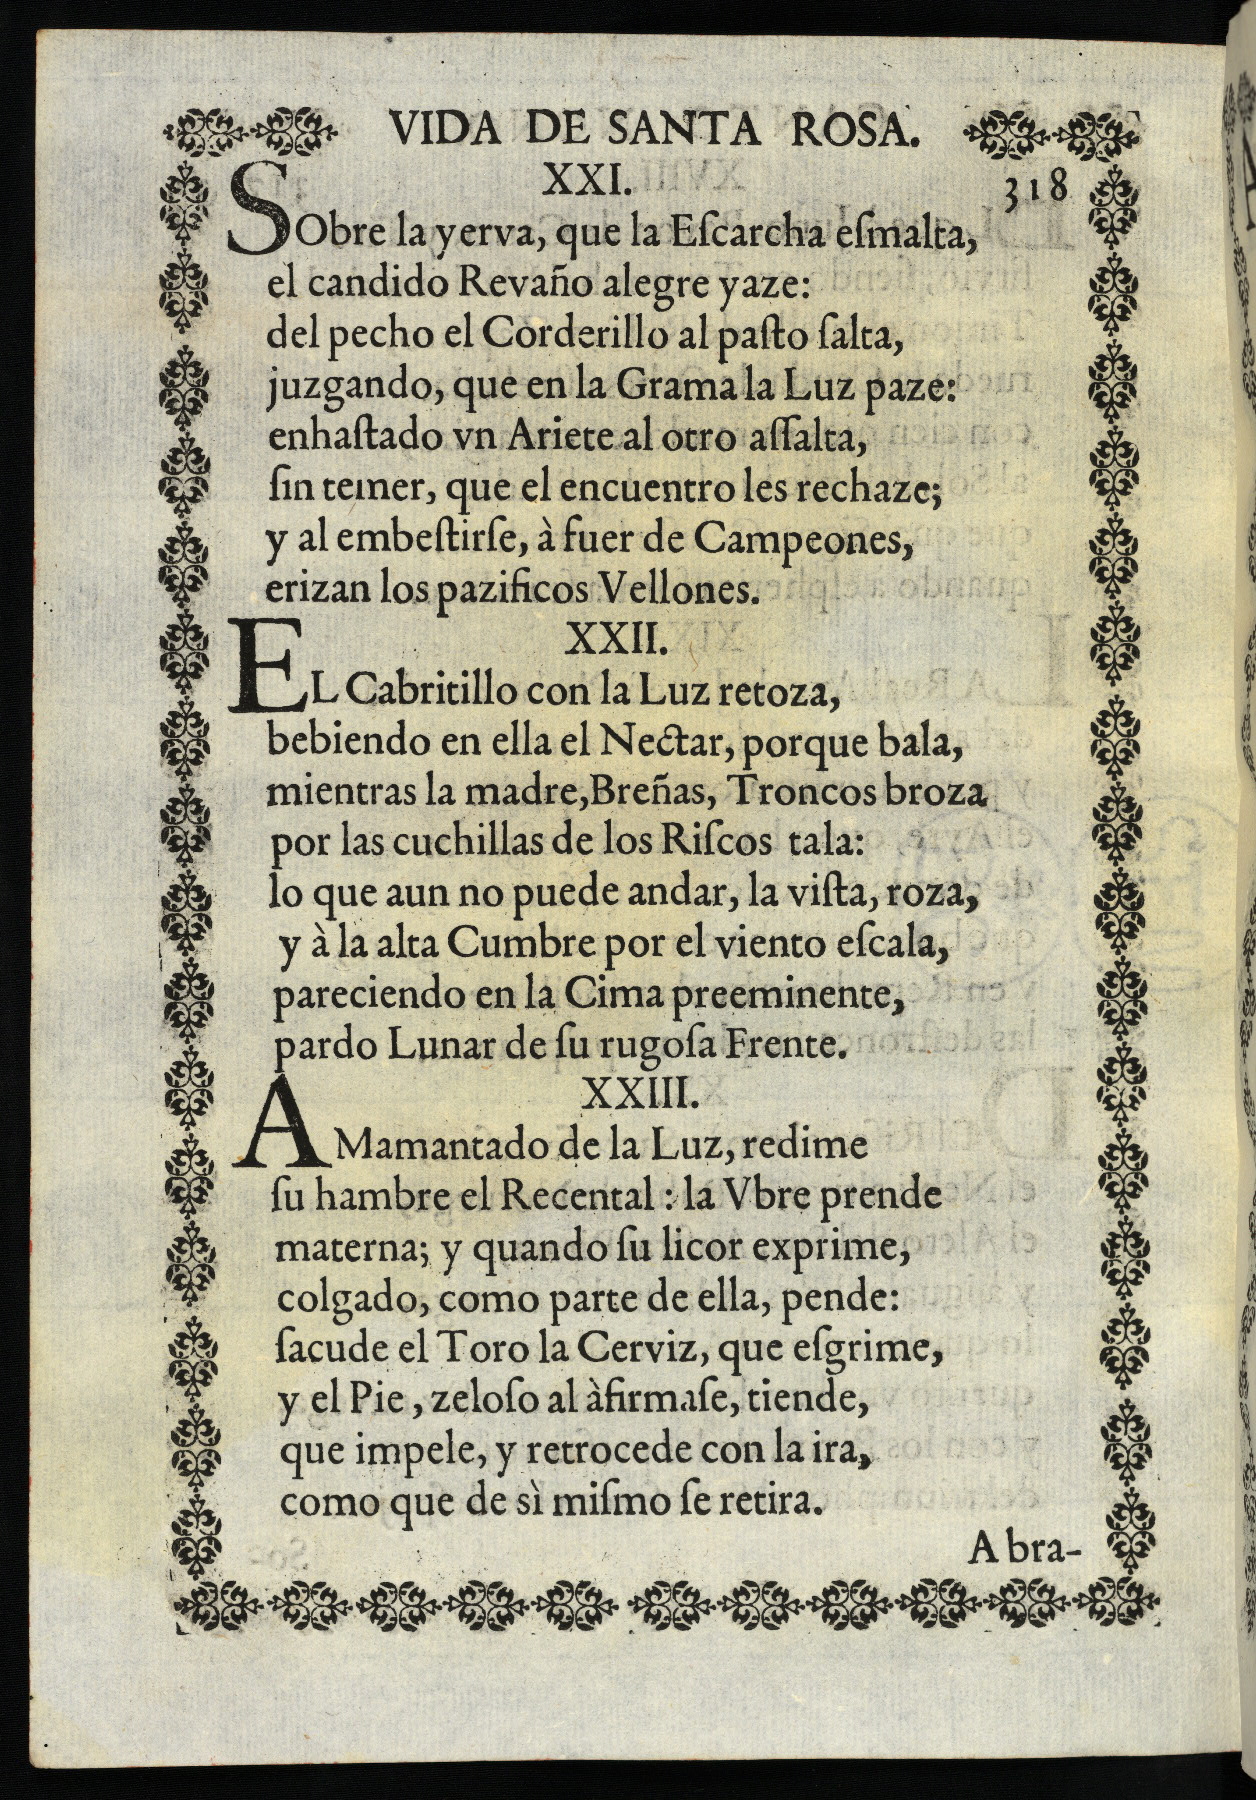 VIDA DE SANTA ROSA.
XXI.
318
SObre la yerva, que la Eſcarcha eſmalta,
el candido Revaño alegre yaze:
del pecho el Corderillo al paſto ſalta,
juzgando, que en la Grama la Luz paze:
enhaſtado vn Ariete al otro aſſalta,
ſin temer, que el encuentro les rechaze;
y al embeſtirſe, à fuer de Campeones,
erizan los pazificos Vellones.
XXII.
EL Cabritillo con la Luz retoza,
bebiendo en ella el Nectar, porque bala,
mientras la madre,Breñas, Troncos broza
por las cuchillas de los Riſcos tala:
lo que aun no puede andar, la viſta, roza,
y à la alta Cumbre por el viento eſcala,
pareciendo en la Cima preeminente,
pardo Lunar de ſu rugoſa Frente.
XXIII.
AMamantado de la Luz, redime
ſu hambre el Recental : la Vbre prende
materna; y quando ſu licor exprime,
colgado, como parte de ella, pende:
ſacude el Toro la Cerviz, que eſgrime,
y el Pie, zeloſo al àfirmaſe, tiende,
que impele, y retrocede con la ira,
como que de sì miſmo ſe retira.
Abra-